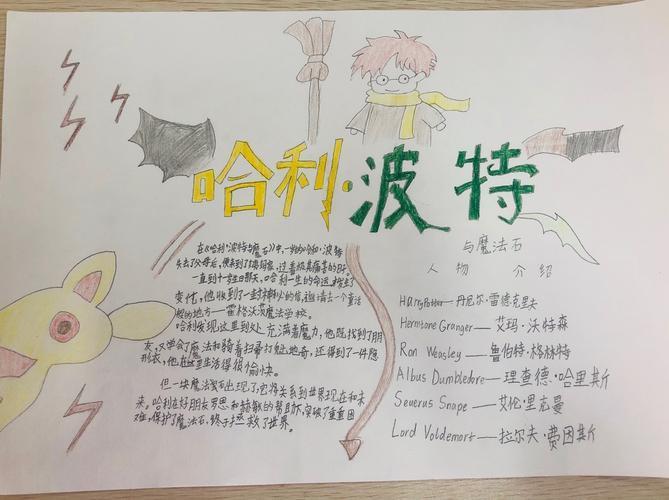 哈利·波特
与魔法石
人物 介绍
在《哈利·波特与魔石》中,一岁的哈利·波特
失去了父母后,便来到了姨妈家,过着极其痛苦的日子
一直到十一岁生日那天,哈利一生的命运才发生了
变化,他收到了一封神秘的信,邀请去一个童话
般的地方——霍格沃茨魔法学校。
哈利发现这里到处充满着魔力,他既找到了朋
友,又学会了魔法和骑着扫帚打魁地奇,还得到了一件隐
形衣,他在这里生活得很愉快。
但一块魔法石出现了,它将关系到世界现在和未
来。哈利在好朋友罗恩和赫敏的帮助下,突破了重重困
难,保护了魔法石,终于拯救了世界。
Harry Potter——丹尼尔·雷德克里夫
Hermione Granger——艾玛·沃特森
Ron Weasley——鲁伯特·格林特
Albus Dumbledore——理查德·哈里斯
Severus Snape——艾伦·里克曼
Lord Voldemort——拉尔夫·费因斯